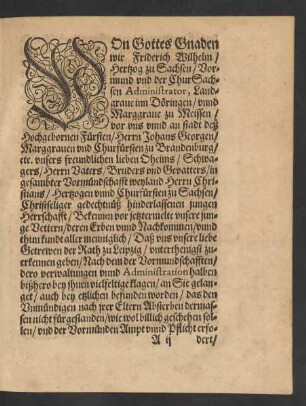 VOn Gottes Gnaden
wir Friderich Wilhelm /
Hertzog zu Sachsen / Vor-
mund vnd der ChurSach-
sen Administrator, Land-
graue im Döringen / vnnd
Marggraue zu Meissen /
vor vns vnnd an stadt deß
Hochgebornen Fürsten / Herrn Johans Georgen /
Marggrauen vnd Churfürsten zu Brandenburg /
etc. vnsers freundlichen lieben Oheims / Schwa-
gers / Herrn Vaters / Bruders vnd Geuatters / in
gesambter Vormündschafft weyland Herrn Chri-
stians / Hertzogen vnnd Churfürsten zu Sachsen /
Christseliger gedechtnüß hinderlassenen jungen
Herrschafft / Bekennen vor jetztermelte vnsere jun-
ge Vettern / deren Erben vnnd Nachkommen / vnnd
thun kund aller menniglich / Daß vns vnsere liebe
Getrewen der Rath zu Leipzig / vnterthenigst zu-
erkennen geben / Nach dem der Vormundschafften /
dero verwaltungen vnd Administration halben
bißhero bey jhnen vielfeltige klagen / an Sie gelan-
get / auch bey etzlichen befunden worden / das den
Vnmündigen nach jrer Eltern Absterben dermas-
sen nicht fürgestanden / wie wol billich geschehen sol-
len / vnd der Vormünden Ampt vnnd Pflicht erfo-
A ij dert /